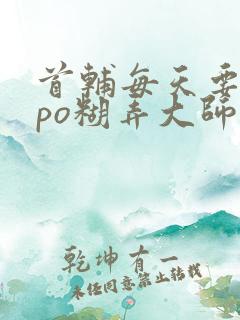 首輔每天要
po糊弄大師
乾坤有一
未经同意禁止转载